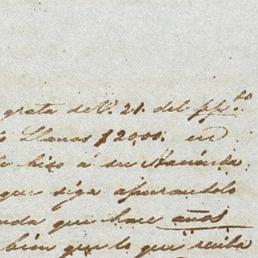 grata de V. 21. del pp.do
Llanas $2000. en
hizo á su Hacienda
que siga apurandolo
que hace años
bien que lo que reciba